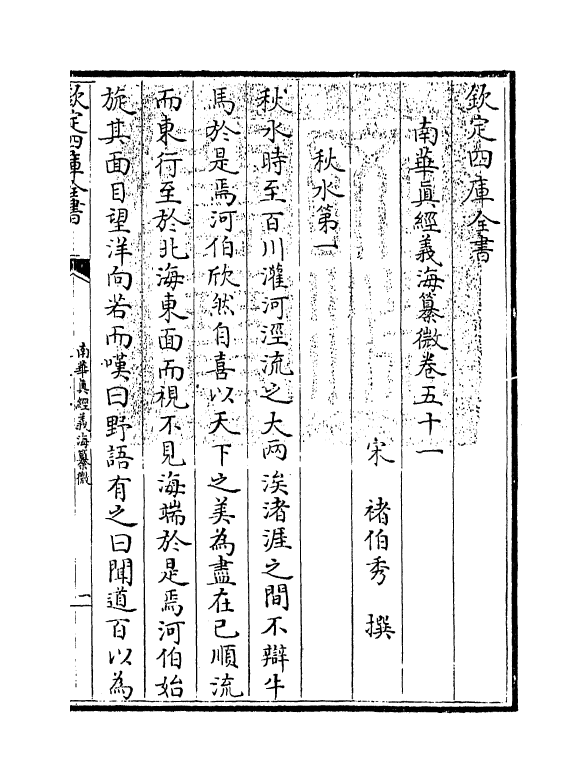 欽定四庫全書
南華真經義海纂微卷五十一
宋 褚伯秀 撰
秋水第一
秋水時至百川灌河涇流之大兩涘渚涯之間不辯牛
馬於是焉河伯欣然自喜以天下之美為盡在己順流
而東行至於北海東面而視不見海端於是焉河伯始
旋其面目望洋向若而嘆曰野語有之曰聞道百以為
欽定四庫全書
南華真經義海纂微
一